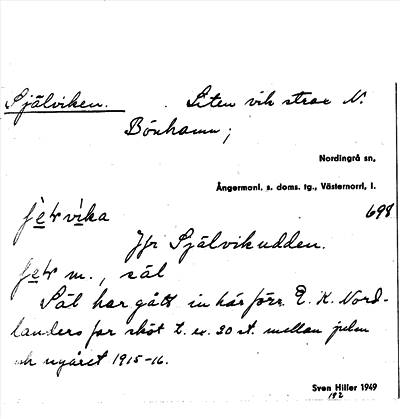 Själviken. Liten vik strax N.
Bönhamn;
Nordingrå sn,
Ångermanl. s. doms. tg., Västernorrl. l.
698
Jfr Själviksudden.
m., säl
Säl har gått in här förr. E. K. Nord-
landers far sköt t. ex. 20 st. mellan julen
och nyåret 1915-16.
Sven Hiller 1949
192